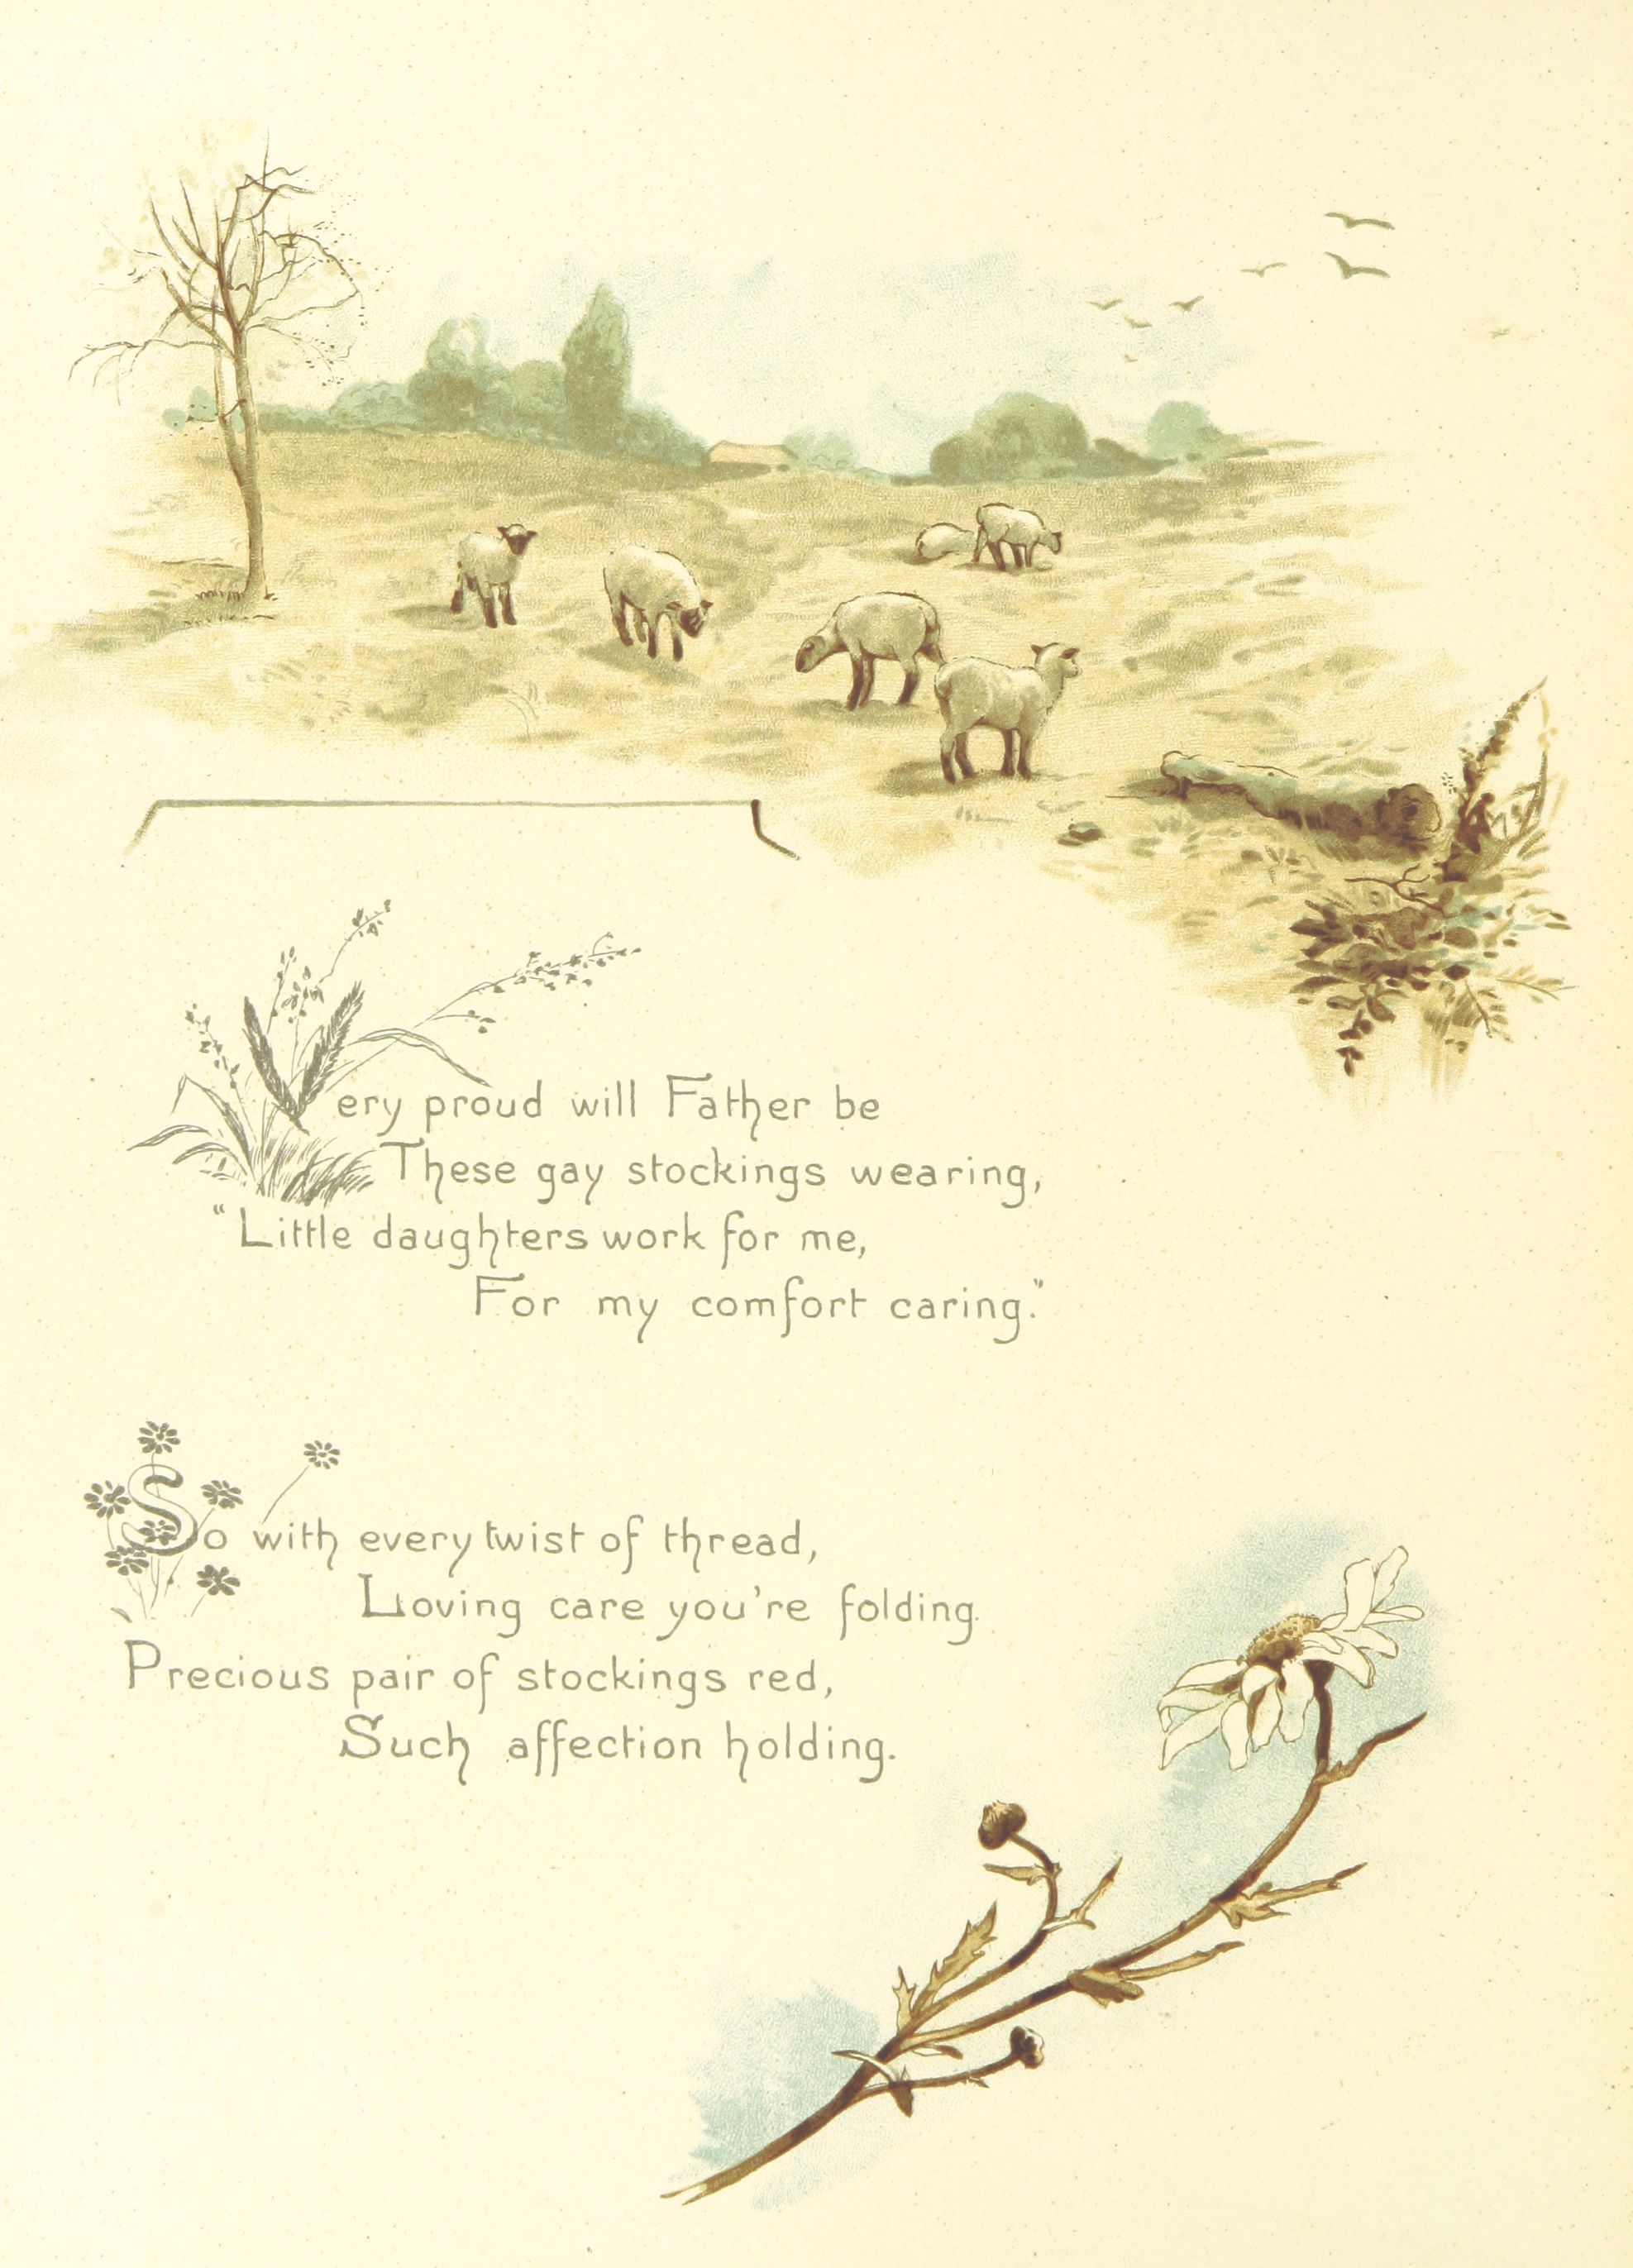 Very proud will Father be
These gay stockings wearing,
"Little daughters work for me,
For my comfort caring."
So with every twist of thread,
Loving care you're folding.
Precious pair of stockings red,
Such affection holding.